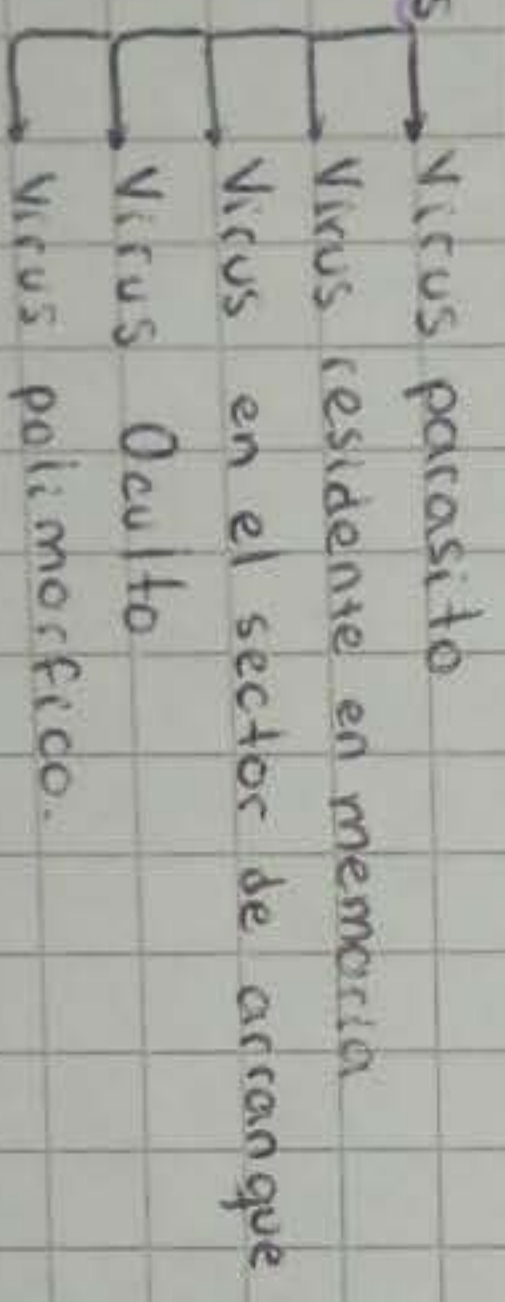 Virus parasito
Virus residente en memoria
Virus en el sector de arranque
Virus Oculto
Virus polimorfico.